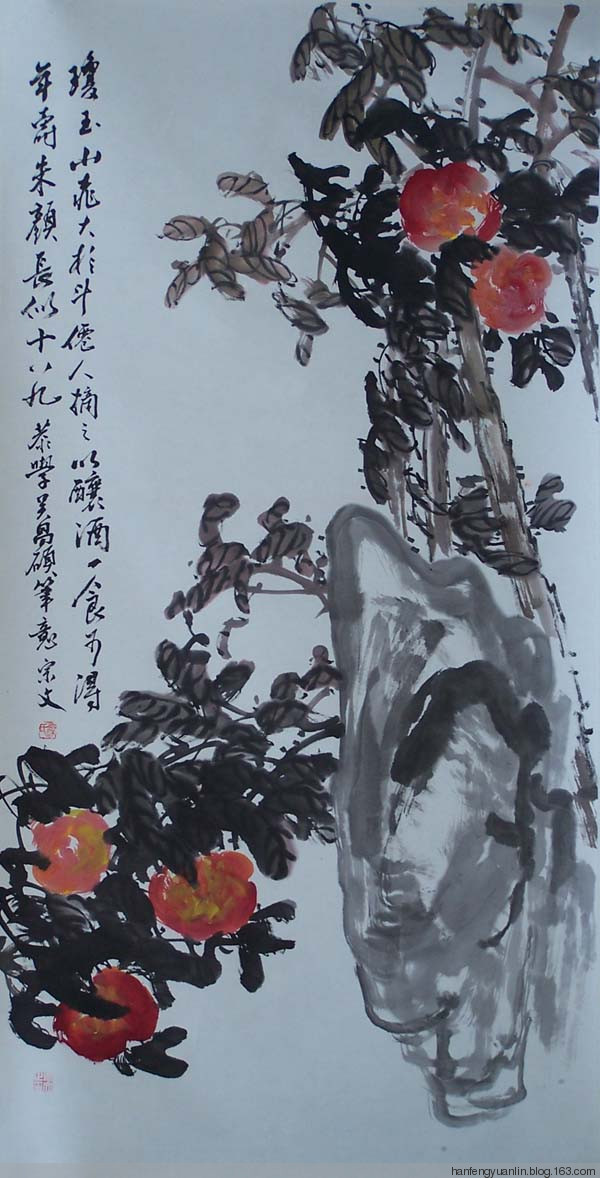 瓊玉山桃大於斗僊人摘之以釀酒一食可得
年壽朱顏長似十八九 恭學吴昌碩筆意宗文
hanfengyuanlin.blog.163.com